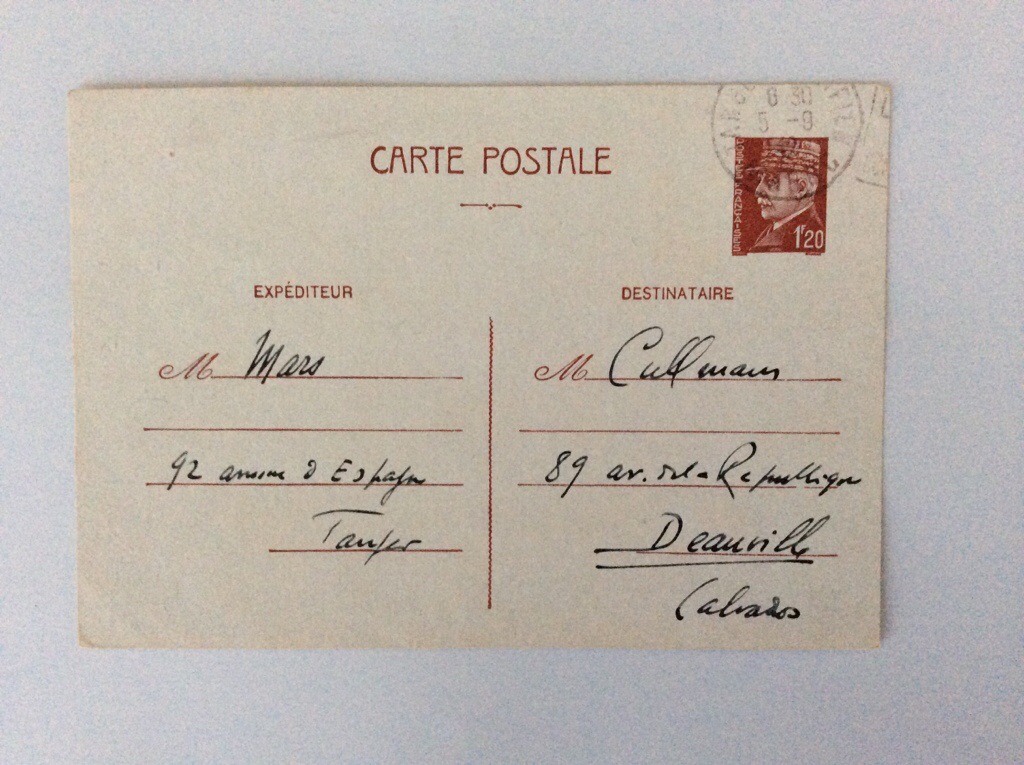 CARTE POSTALE
6 30
5 -9
POSTES FRANÇAISES
1F20
EXPÉDITEUR
M Mars
92 avenue d Espagne
Tanger
DESTINATAIRE
M Cullmann
89 av. de la Republique
Deauville
Calvados